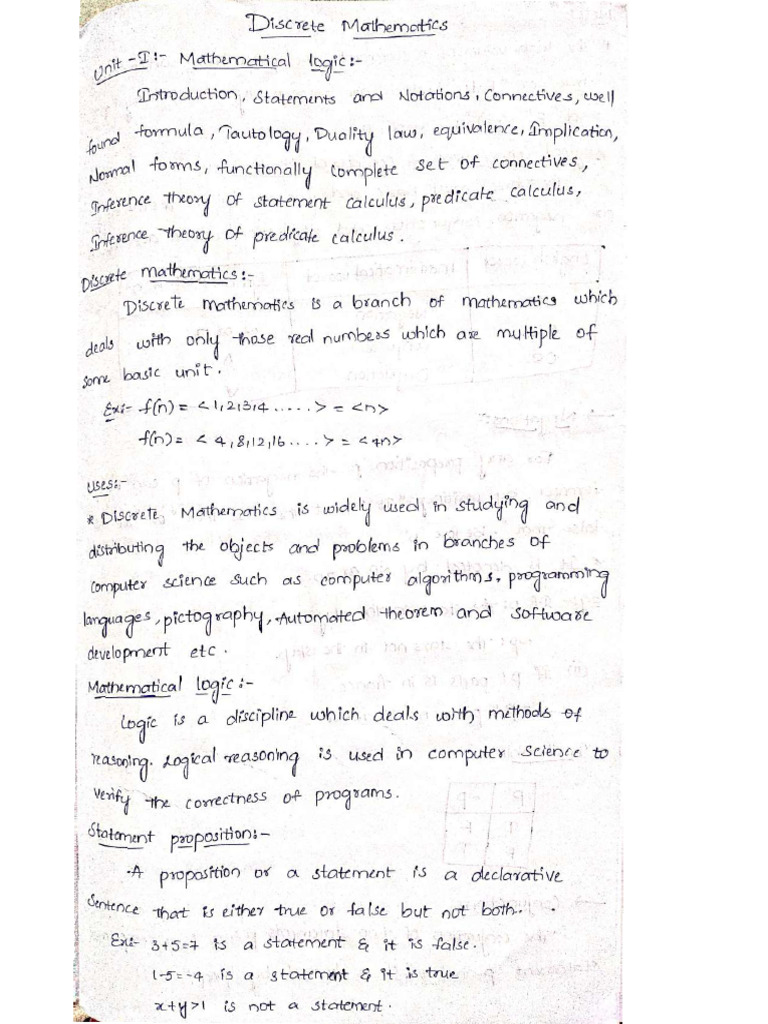 Discrete Mathematics
Unit-I:- Mathematical logic:-
Introduction, Statements and Notations, Connectives, well
found formula, Tautology, Duality law, equivalence, Implication,
Normal forms, functionally complete set of connectives,
Inference theory of statement calculus, predicate calculus,
Inference theory of predicate calculus.
Discrete mathematics:-
Discrete mathematics is a branch of mathematics which
deals with only those real numbers which are multiple of
some basic unit.
Ex:- f(n) = <1,2,3,4.....> = <n>
f(n) = <4,8,12,16....> = <4n>
uses:-
* Discrete Mathematics is widely used in studying and
distributing the objects and problems in branches of
computer science such as computer algorithms, programming
languages, pictography, Automated theorem and software
development etc.
Mathematical logic:-
Logic is a discipline which deals with methods of
reasoning. Logical reasoning is used in computer science to
verify the correctness of programs.
Statement proposition:-
A proposition or a statement is a declarative
sentence that is either true or false but not both.
Ex:- 3+5=7 is a statement & it is false.
1-5=-4 is a statement & it is true
x+y>1 is not a statement.